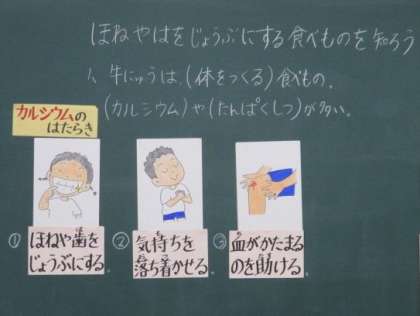 ほねやはをじょうぶにする食べものを知ろう
1、牛にゅうは、(体をつくる)食べもの。
(カルシウム)や(たんぱくしつ)が多い。
カルシウムの
はたらき
① ほねや歯を
じょうぶにする。
② 気持ちを
落ち着かせる。
③ 血がかたまる
のを助ける。